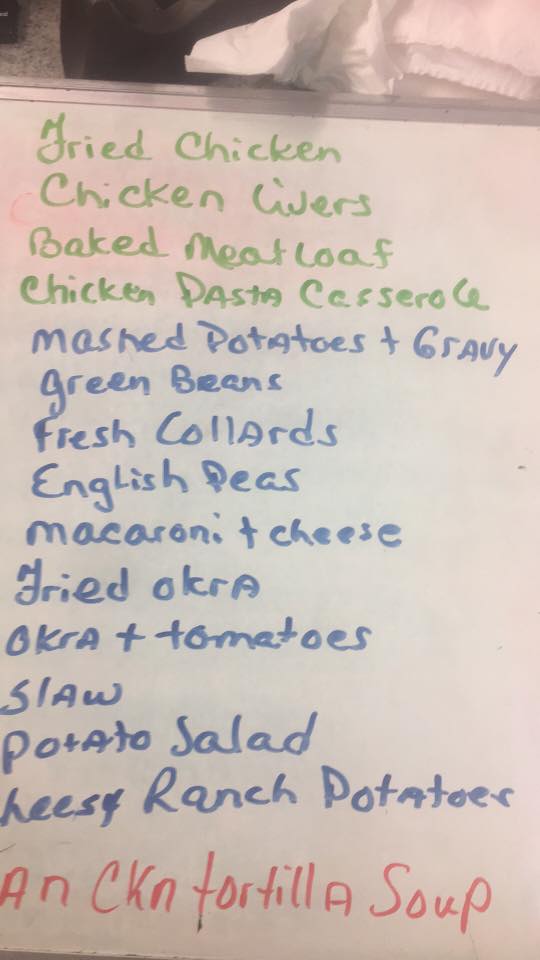 Fried Chicken
Chicken Livers
Baked Meatloaf
Chicken Pasta Casserole
Mashed Potatoes + Gravy
green Beans
Fresh Collards
English Peas
macaroni + cheese
Fried okra
Okra + tomatoes
Slaw
Potato Salad
heesy Ranch Potatoes
An Ckn tortilla Soup